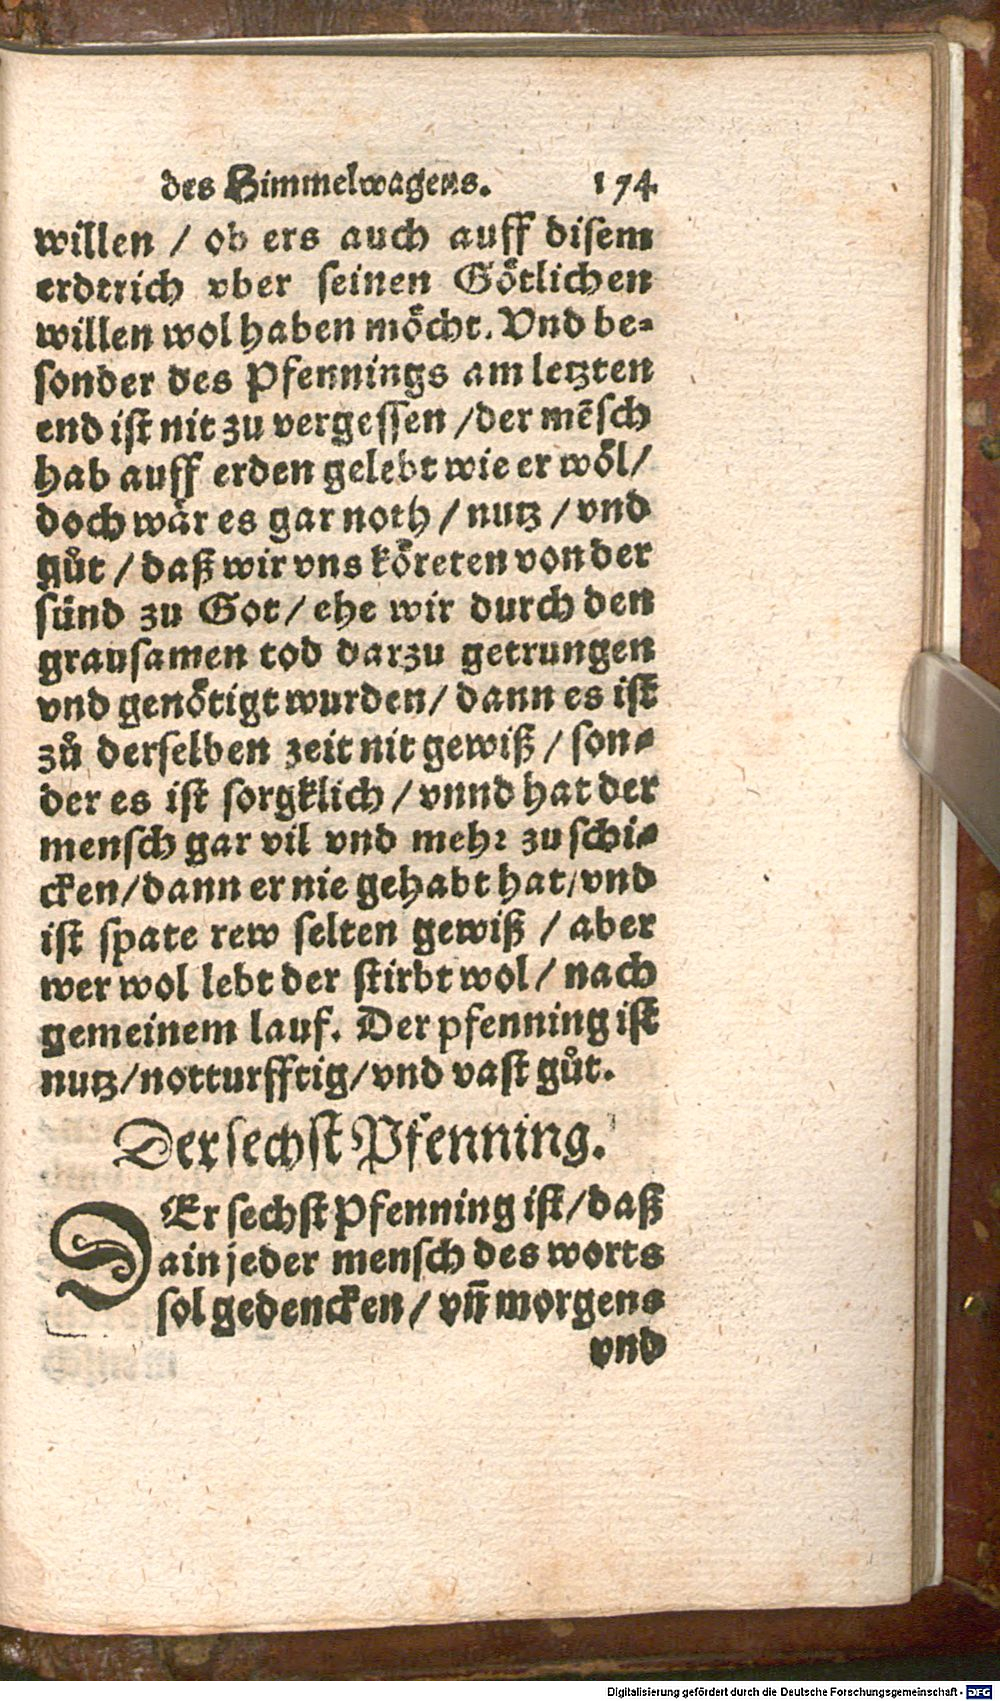 des Himmelwagens. 174.
willen / ob ers auch auff disem
erdtrich vber seinen Goͤtlichen
willen wol haben moͤcht. Vnd be-
sonder des Pfennings am letzten
end ist nit zu vergessen / der mēsch
hab auff erden gelebt wie er woͤl /
doch waͤr es gar noth / nutz / vnd
guͦt / daß wir vns koͤreten von der
suͤnd zu Got / ehe wir durch den
grausamen tod darzu getrungen
vnd genoͤtigt wurden / dann es ist
zuͦ derselben zeit nit gewiß / son-
der es ist sorgklich / vnnd hat der
mensch gar vil vnd mehr zu schi-
cken / dann er nie gehabt hat / vnd
ist spate rew selten gewiß / aber
wer wol lebt der stirbt wol / nach
gemeinem lauf. Der pfenning ist
nutz / notturfftig / vnd vast guͦt.
Der sechst Pfenning.
DEr sechst Pfenning ist / daß
ain jeder mensch des worts
sol gedencken / vn̄ morgens
vnd
Digitalisierung gefördert durch die Deutsche Forschungsgemeinschaft - DFG